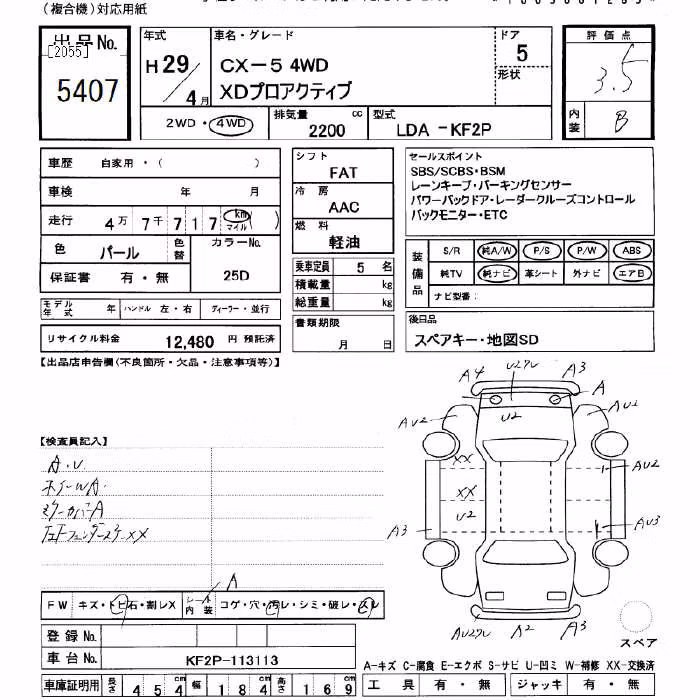 （複合機）対応用紙
出品No.
[2055]
5407
年式
H29/4月
車名・グレード
CX-5 4WD
XDプロアクティブ
ドア
5
形状
評価点
3.5
内装
B
2WD・4WD
排気量
2200 cc
型式
LDA-KF2P
車歴 自家用・（ ）
車検 年 月
走行 4万7千717 km マイル ( )
色 パール
色替
カラーNo.
25D
保証書 有・無
モデル年式 年
ハンドル 左・右
ディーラー・並行
リサイクル料金 12,480 円 預託済
シフト
FAT
冷房
AAC
燃料
軽油
乗車定員 5 名
積載量 kg
総重量 kg
書類期限
月 日
セールスポイント
SBS/SCBS・BSM
レーンキープ・パーキングセンサー
パワーバックドア・レーダークルーズコントロール
バックモニター・ETC
装備品
S/R 純A/W P/S P/W ABS
純TV 純ナビ 革シート 外ナビ エアB
ナビ型番：
後日品
スペアキー・地図SD
【出品店申告欄(不良箇所・欠品・注意事項等)】
【検査員記入】
A・U
ホイールA
ミラーカバーA
A4
A3
A
AU2
U2
AU2
XX
XX
U2
AU2
A3
AU3
A2
A3
スペア
A
FW キズ・トビ石・割レX
レール内装
コゲ・穴・汚レ・シミ・破レ・スレ
登録No.
車台No. KF2P-113113
車庫証明用 長さ 454 cm 幅 184 cm 高さ 169 cm
A-キズ C-腐食 E-エクボ S-サビ U-凹ミ W-補修 XX-交換済
工具 有・無 ジャッキ 有・無